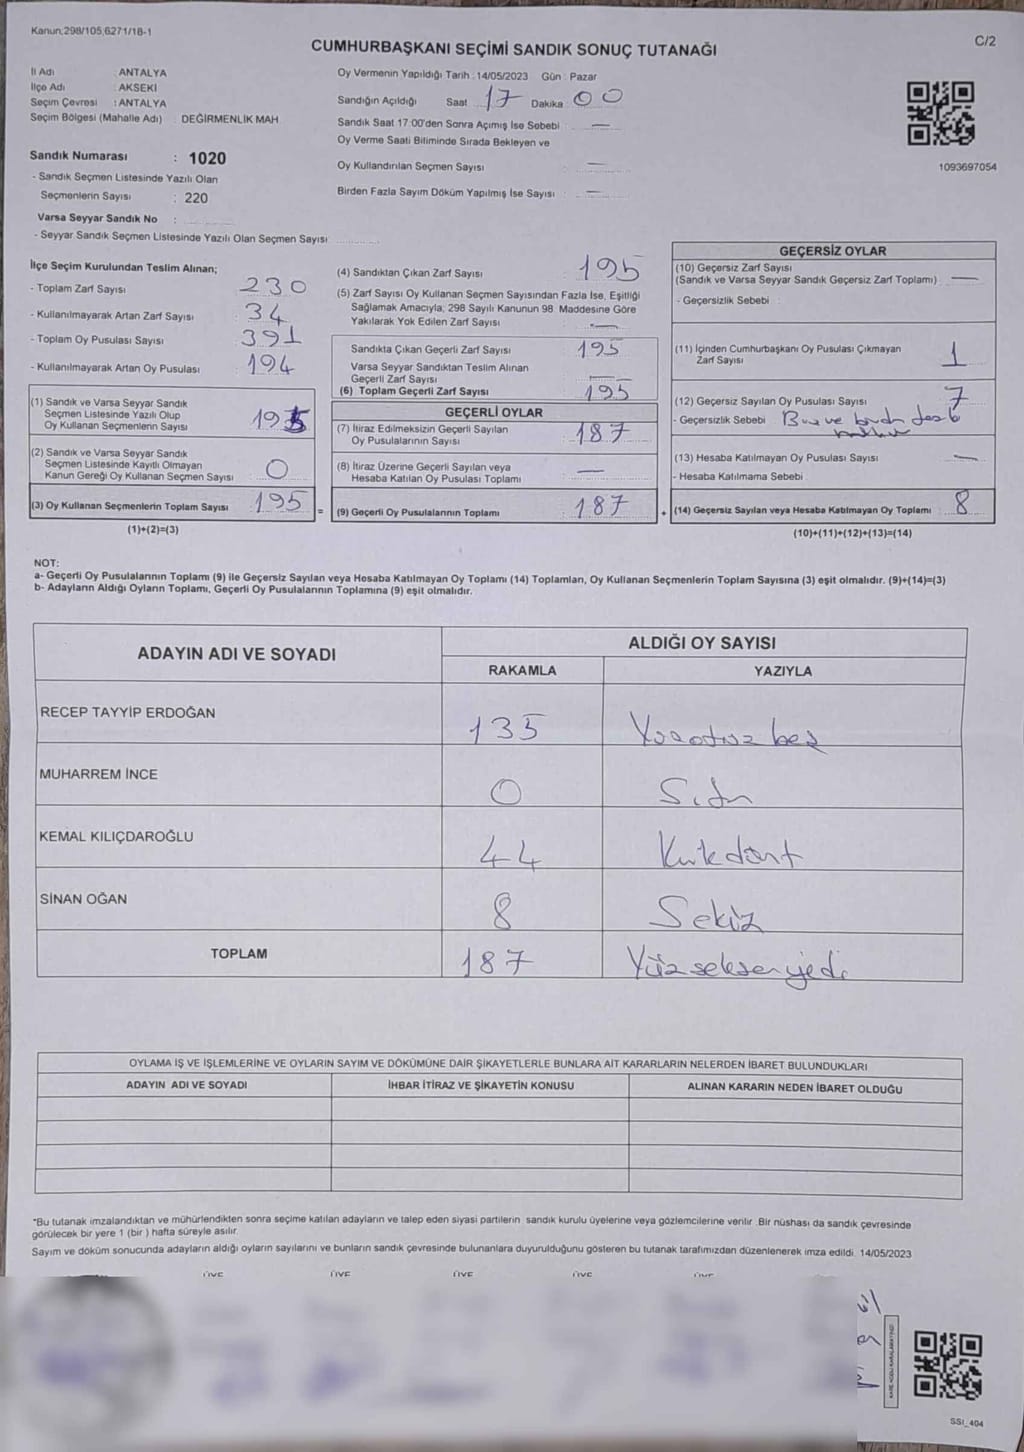 Kanun;298/105,6271/18-1
C/2
CUMHURBAŞKANI SEÇİMİ SANDIK SONUÇ TUTANAĞI
İl Adı : ANTALYA
İlçe Adı : AKSEKİ
Seçim Çevresi : ANTALYA
Seçim Bölgesi (Mahalle Adı) : DEĞİRMENLİK MAH
Sandık Numarası : 1020
- Sandık Seçmen Listesinde Yazılı Olan
Seçmenlerin Sayısı : 220
Varsa Seyyar Sandık No :
- Seyyar Sandık Seçmen Listesinde Yazılı Olan Seçmen Sayısı
Oy Vermenin Yapıldığı Tarih : 14/05/2023 Gün : Pazar
Sandığın Açıldığı Saat 17 Dakika 00
Sandık Saat 17:00'den Sonra Açımış İse Sebebi : —
Oy Verme Saati Bitiminde Sırada Bekleyen ve
Oy Kullandırılan Seçmen Sayısı : —
Birden Fazla Sayım Döküm Yapılmış İse Sayısı : —
1093697054
İlçe Seçim Kurulundan Teslim Alınan;
- Toplam Zarf Sayısı : 230
- Kullanılmayarak Artan Zarf Sayısı : 34
- Toplam Oy Pusulası Sayısı : 391
- Kullanılmayarak Artan Oy Pusulası : 194
(1) Sandık ve Varsa Seyyar Sandık
Seçmen Listesinde Yazılı Olup
Oy Kullanan Seçmenlerin Sayısı 195
(2) Sandık ve Varsa Seyyar Sandık
Seçmen Listesinde Kayıtlı Olmayan
Kanun Gereği Oy Kullanan Seçmen Sayısı 0
(3) Oy Kullanan Seçmenlerin Toplam Sayısı 195
(1)+(2)=(3)
(4) Sandıktan Çıkan Zarf Sayısı 195
(5) Zarf Sayısı Oy Kullanan Seçmen Sayısından Fazla İse, Eşitliği
Sağlamak Amacıyla, 298 Sayılı Kanunun 98. Maddesine Göre
Yakılarak Yok Edilen Zarf Sayısı —
Sandıkta Çıkan Geçerli Zarf Sayısı 195
Varsa Seyyar Sandıktan Teslim Alınan
Geçerli Zarf Sayısı —
(6) Toplam Geçerli Zarf Sayısı 195
GEÇERLİ OYLAR
(7) İtiraz Edilmeksizin Geçerli Sayılan
Oy Pusulalarının Sayısı 187
(8) İtiraz Üzerine Geçerli Sayılan veya
Hesaba Katılan Oy Pusulası Toplamı —
= (9) Geçerli Oy Pusulalarının Toplamı 187
GEÇERSİZ OYLAR
(10) Geçersiz Zarf Sayısı
(Sandık ve Varsa Seyyar Sandık Geçersiz Zarf Toplamı) —
- Geçersizlik Sebebi :
(11) İçinden Cumhurbaşkanı Oy Pusulası Çıkmayan
Zarf Sayısı 1
(12) Geçersiz Sayılan Oy Pusulası Sayısı 7
- Geçersizlik Sebebi
(13) Hesaba Katılmayan Oy Pusulası Sayısı —
- Hesaba Katılmama Sebebi
+ (14) Geçersiz Sayılan veya Hesaba Katılmayan Oy Toplamı 8
(10)+(11)+(12)+(13)=(14)
NOT:
a- Geçerli Oy Pusulalarının Toplamı (9) ile Geçersiz Sayılan veya Hesaba Katılmayan Oy Toplamı (14) Toplamları, Oy Kullanan Seçmenlerin Toplam Sayısına (3) eşit olmalıdır. (9)+(14)=(3)
b- Adayların Aldığı Oyların Toplamı, Geçerli Oy Pusulalarının Toplamına (9) eşit olmalıdır.
ADAYIN ADI VE SOYADI
ALDIĞI OY SAYISI
RAKAMLA YAZIYLA
RECEP TAYYİP ERDOĞAN 135 Yüzotuz beş
MUHARREM İNCE 0 Sıfır
KEMAL KILIÇDAROĞLU 44 Kırkdört
SİNAN OĞAN 8 Sekiz
TOPLAM 187 Yüz seksen yedi
OYLAMA İŞ VE İŞLEMLERİNE VE OYLARIN SAYIM VE DÖKÜMÜNE DAİR ŞİKAYETLERLE BUNLARA AİT KARARLARIN NELERDEN İBARET BULUNDUKLARI
ADAYIN ADI VE SOYADI İHBAR İTİRAZ VE ŞİKAYETİN KONUSU ALINAN KARARIN NEDEN İBARET OLDUĞU
*Bu tutanak imzalandıktan ve mühürlendikten sonra seçime katılan adayların ve talep eden siyasi partilerin sandık kurulu üyelerine veya gözlemcilerine verilir. Bir nüshası da sandık çevresinde
görülecek bir yere 1 (bir ) hafta süreyle asılır.
Sayım ve döküm sonucunda adayların aldığı oyların sayılarını ve bunların sandık çevresinde bulunanlara duyurulduğunu gösteren bu tutanak tarafımızdan düzenlenerek imza edildi. 14/05/2023
ÜYE ÜYE ÜYE ÜYE ÜYE
SSI_404